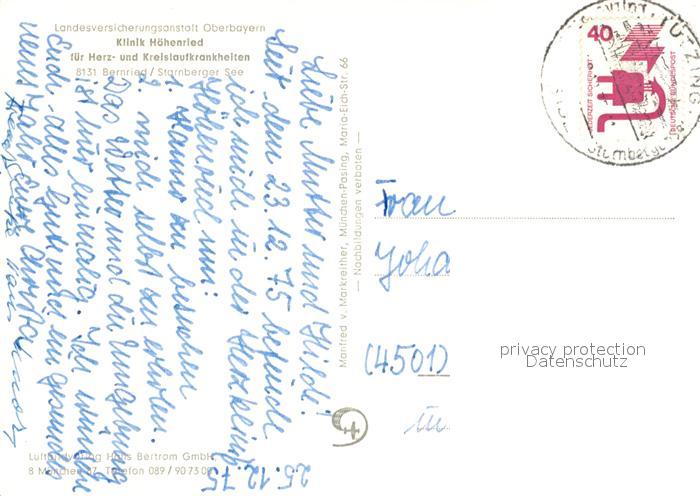 Landesversicherungsanstalt Oberbayern
Klinik Höhenried
für Herz- und Kreislaufkrankheiten
8131 Bernried / Starnberger See
25.12.75
Liebe Mutter und Hilde!
Seit dem 23.12.75 befinde
ich mich in der Herzklinik
Höhenried um:
1. Hanns zu besuchen
2. mich selbst zu erholen.
Das Wetter und die Umgebung
ist nur einmalig. Ich wünsche
Euch alles Gute und ein gesundes
neues Jahr Eure Christa
Luftbildverlag Hans Bertram GmbH,
8 München 87, Telefon 089 / 90 73 00
Manfred v. Markreither, München-Pasing, Maria-Eich-Str. 66
— Nachbildungen verboten —
40
JEDERZEIT SICHERHEIT
DEUTSCHE BUNDESPOST
TUTZING
Frau
Joha
(4501)
in
privacy protection
Datenschutz